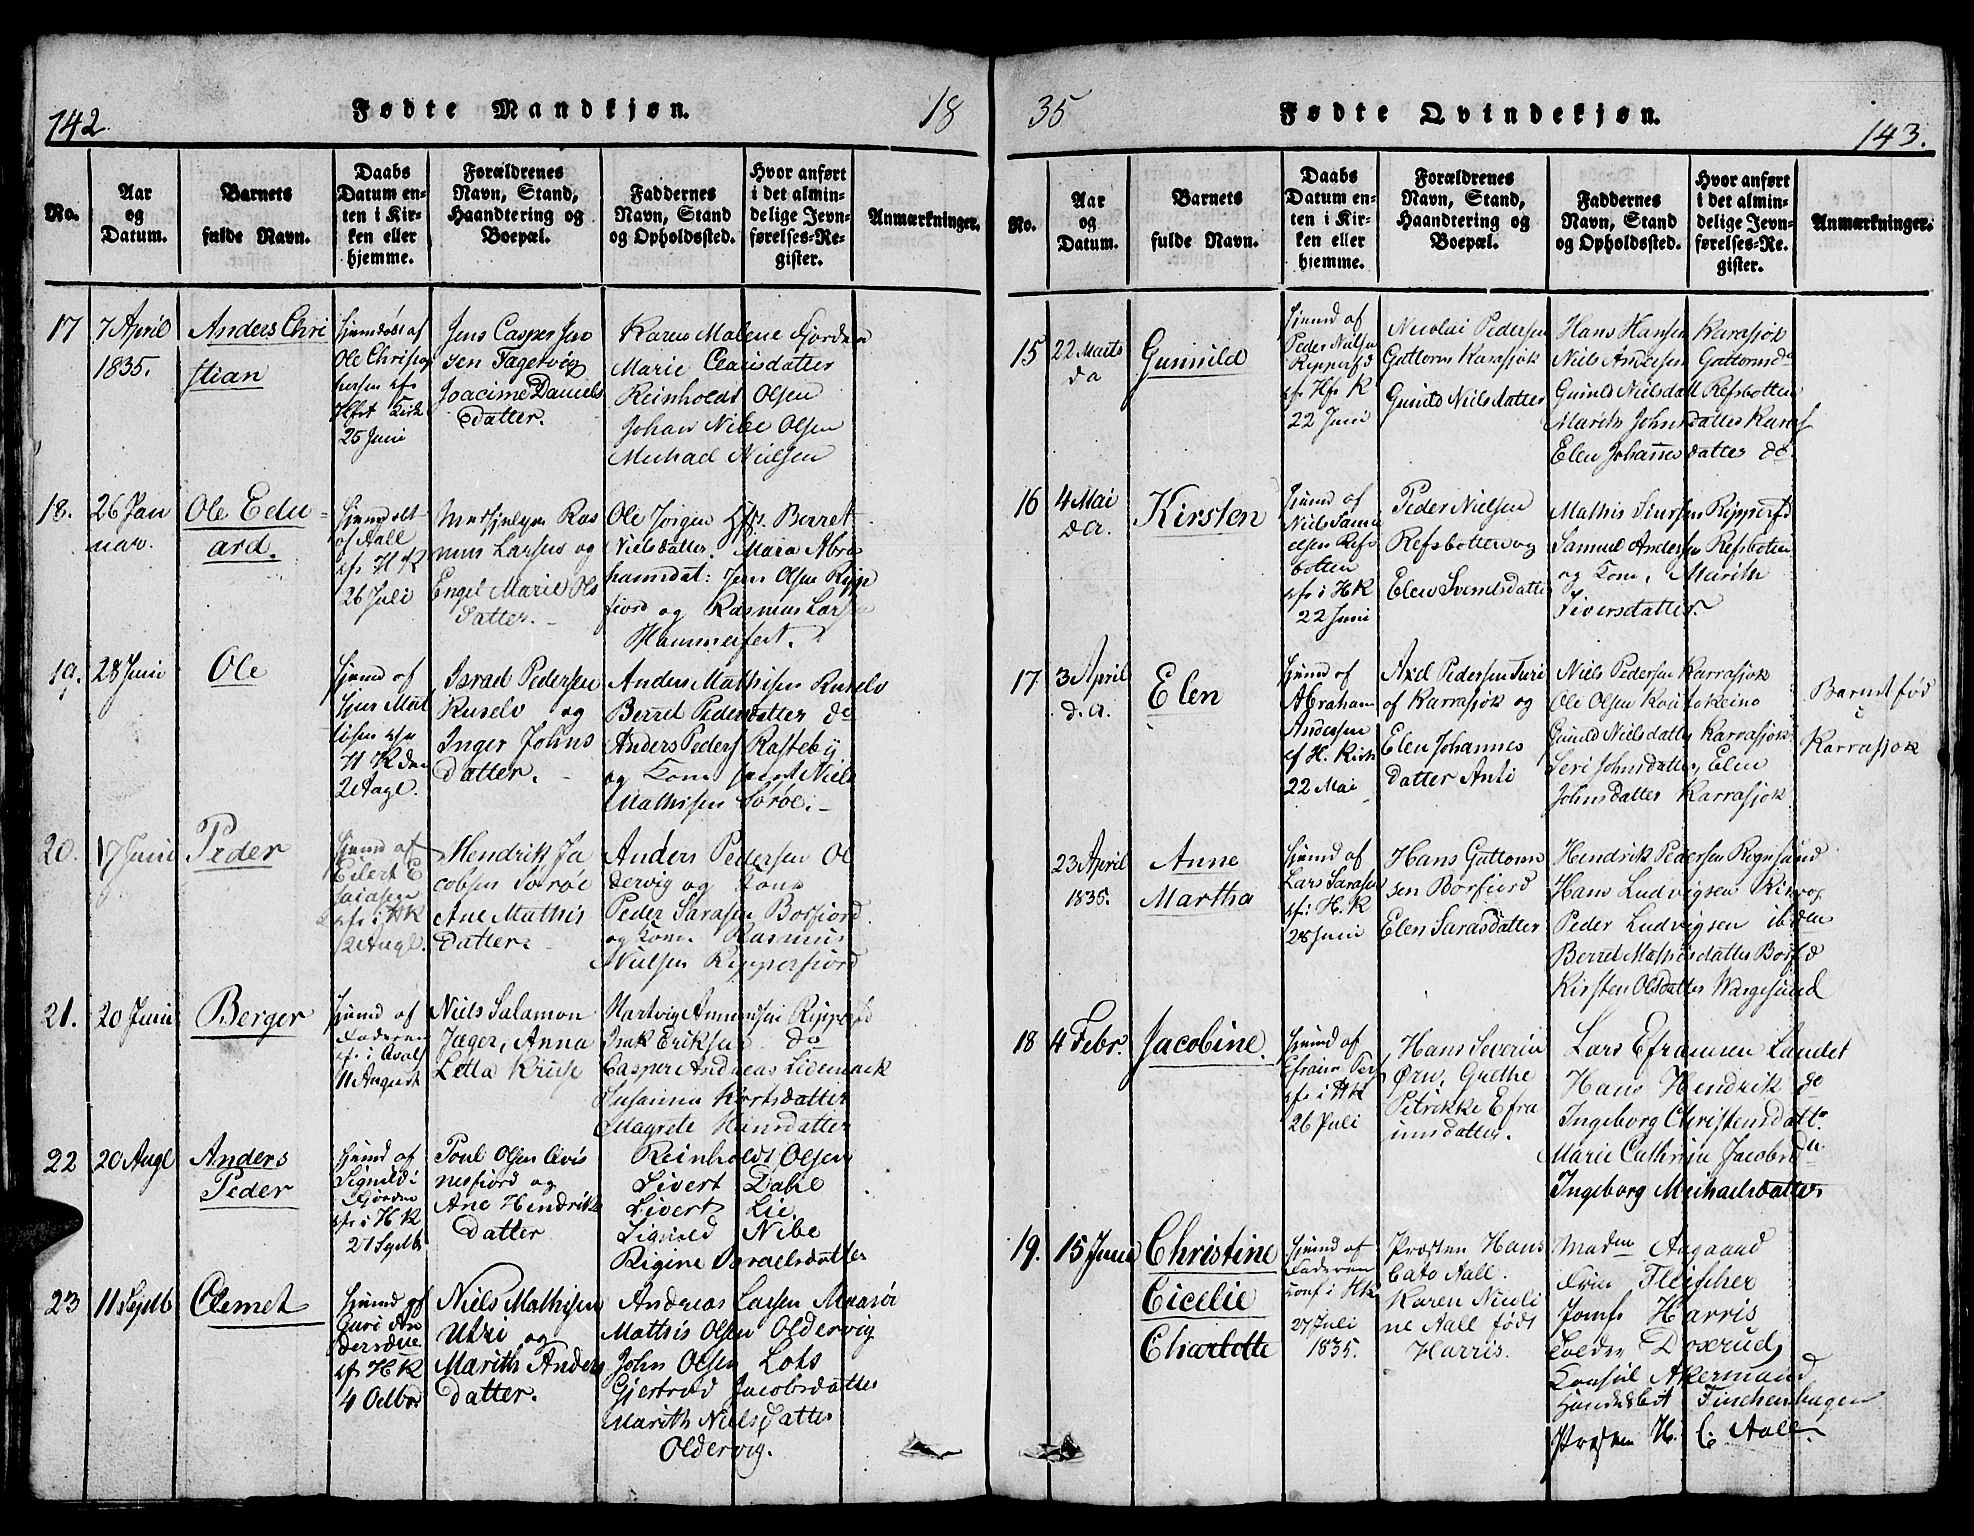 142.
Fødte Mandkjøn.
18
No.
Aar og Datum.
Barnets fulde Navn.
Daabs Datum enten i Kirken eller hjemme.
Forældrenes Navn, Stand, Haandtering og Boepæl.
Faddernes Navn, Stand og Opholdssted.
Hvor anført i det almindelige Jevnførelses-Register.
Anmærkninger.
17
7 April
1835.
Anders Chri
stian
hjemdøbt af
Ole Christop
hersen
25 Juni
Jens Casper Jen
sen Fagervig
Joacime Daniels
datter.
Karen Malene Fjorden
Marie Clausdatter
Reinholdt Olsen
Johan Nibe Olsen
Michael Nielsen
18.
26 Jan
uar.
Ole Edu
ard.
hjemdølt
af Aall
H K
26 Juli
Ras
mus Larsen og
Engel Marie Ols
datter.
Ole Jørgensen Berret
Nielsdatter. Mara Abra
hamsdat: Jens Olsen Ripp
fiord og Rasmus Lars
Hammerfest.
19.
28 Juni
Ole
hjemd af
H K den
2 Augl.
Israel Pedersen
Kuselv og
Inger Johns
datter.
Anders Mathisen Kuselv
Berret Pedersdatter do
Anders Peders Rasteby
og Kone samt Niels
Mathisen Sørøe.
20.
17 Juni
Peder
hjemd af
Eilert E
saiasen
i HK
2 Augl.
Hendrik Ja
cobsen Sørøe
Ane Mathis
datter.
Anders Pedersen Ol
dervig og Kone
Peder Sarasen Borfiord.
og Kone Rasmus
Nielsen Ripperfiord
21.
20 Juni
Berger
hjemd af
Faderen
11 August
Niels Salamon
Jæger, Anna
Letta Kruse
Hartvig Ammundsen Ripperfd
Isak Eriksen do
Casper Andreas Lidemark
Susanna Kortsdatter
Magrete Hansdatter
22
20 Augl
Anders
Peder
hjemd af
i H K
21 Septb
Poul Olsen Qvis
nesfiord og
Ane Hendriks
datter
Reinholdt Olsen
Sivert Dahl
Sivert Lie
Signild Nibe
Rigine Israelsdatter
23
11 Septb
Clemet
hjemd af
Guri An
dersdtte
H K
4 Octbr
Niels Mathisen
Utzi og
Marith Anders
datter.
Andreas Larsen Maasøi
Mathis Olsen Oldervig
John Olsen Lots
Gjertrud Jacobsdatter
Marith Nielsdatter
Oldervig.
35
Fødte Qvindekjøn.
143.
No.
Aar og Datum.
Barnets fulde Navn.
Daabs Datum enten i Kirken eller hjemme.
Forældrenes Navn, Stand, Haandtering og Boepæl.
Faddernes Navn, Stand og Opholdssted.
Hvor anført i det almindelige Jevnførelses-Register.
Anmærkninger.
15
22 Marts
da
Gunnild
hjemd af
Peder Nielsen
Ripperfd
22 Juni
Nicolai Pedersen
Guttorm Karasjok
Gunild Nielsdatter
Hans Hansen Karasjok
Niels Andersen Guttorm do
Gunild Nielsdatt Refsbotten
Marith Johnsdatter Karasj
Elen Johannesdatter do
16
4 Mai
da.
Kirsten
hjemd af
Niels Samu
elsen Refs
botten
i H K
22 Juni
Peder Nielsen
Refsbotten og
Elen Svendsdatter
Mathis Siursen Ripperfd
Samuel Andersen Refsbotten
og Kone, Marith
Siversdatter.
17
3 April
da.
Elen
hjemd af
Abraham
Andersen
H. Kirk
22 Mai
Axel Pedersen Turi
af Karrasjok og
Elen Johannes
datter Anti
Niels Pedersen Karrasjok
Ole Olsen Koutokeino
Gunild Nielsdatter Karrasjok
Seri Johnsdatter, Elen
Johnsdatter Karrasjok
Barnet fød
i
Karrasjok
23 April
1835.
Anne
Martha
hjemd af
Lars Sarasen
i H. K
28 Juni
Hans Guttorm
sen Borfiord
Elen Sarasdatter
Hendrik Pedersen Rognsund
Hans Ludvigsen
Peder Ludvigsen ibden
Berret Mathisdatter Borfd
Kirsten Olsdatter Vargesund
18
4 Febr.
Jacobine.
hjemd af
i HK
26 Juli
Hans Severin
Ørn, Grethe
Petrikke Efra
imsdatter.
Lars Efraimsen Landet
Hans Hendrik do
Ingeborg Christensdattr
Marie Cathrin Jacobsd
Ingeborg Michaelsdatter
19.
15 Juni
Christine
Cicelie
Charlotte
hjemd af
Faderen
conf i Hk
27 Juli
1835.
Præsten Hans
Cato Aall.
Karen Nicoli
ne Aall født
Harris.
Madm Aagaard
Frue Fleischer
Jomfr Harris
Tolder Doxrud
Consul Akermand
Finckenhagen
Præsten H. C. Aall